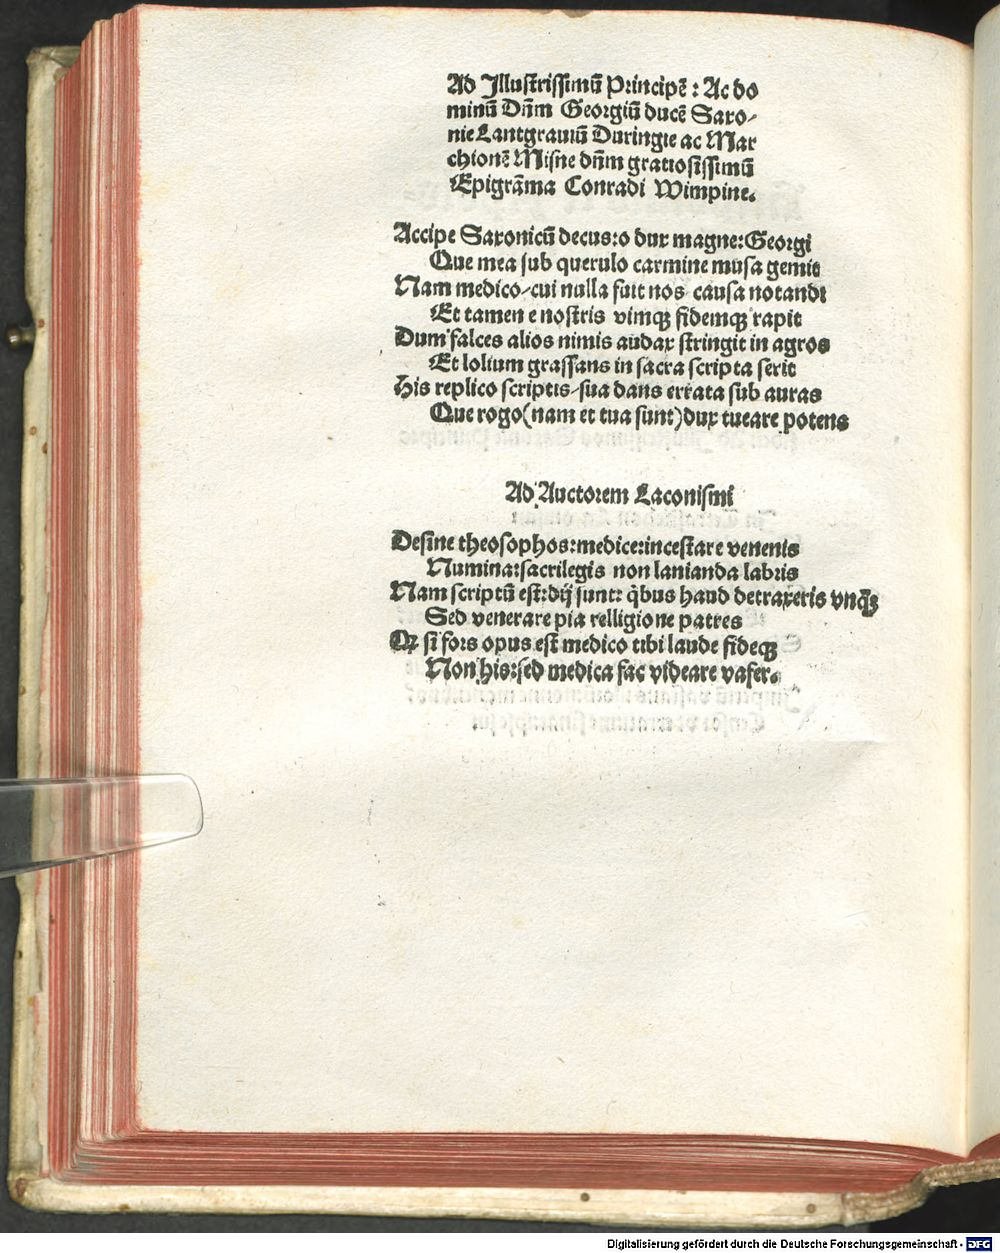 Ad Illustrissimū Principē : Ac do
minū Dn̄m Georgiū ducē Saxo-
nie Lantgrauiū Duringie ac Mar
chionē Misne dn̄m gratiosissimū
Epigrāma Conradi Wimpine.
Accipe Saxonicū decus:o dux magne:Georgi
Que mea sub querulo carmine musa gemit
Nam medico-cui nulla fuit nos causa notandi
Et tamen e nostris vimqꝫ fidemqꝫ rapit
Dum falces alios nimis audax stringit in agros
Et lolium grassans in sacra scripta serit
His replico scriptis-sua dans errata sub auras
Que rogo(nam et tua sunt)dux tueare potens
Ad Auctorem Laconismi
Desine theosophos:medice:incestare venenis
Numina:sacrilegis non lanianda labris
Nam scriptū est:dij sunt: q̄bus haud detraxeris vnq̄ꝫ
Sed venerare pia relligione patres
Qꝫ si fors opus est medico tibi laude fideqꝫ
Non his:sed medica fac videare vafer.
Digitalisierung gefördert durch die Deutsche Forschungsgemeinschaft - DFG